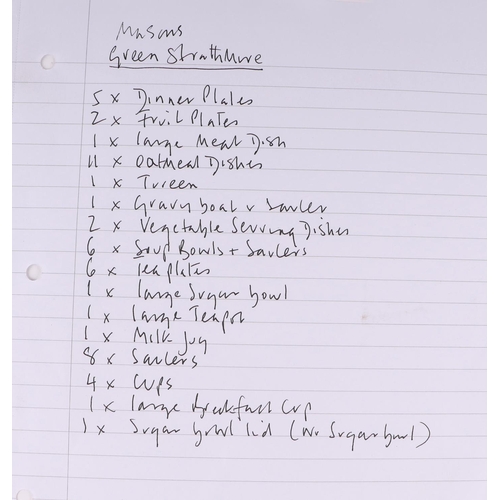 Masons
Green Strathmore
5 x Dinner Plates
2 x Fruit Plates
1 x large Meat Dish
11 x Oatmeal Dishes
1 x Tureen
1 x Gravy boat + Saucer
2 x Vegetable Serving Dishes
6 x Soup Bowls + Saucers
6 x Tea plates
1 x large Sugar bowl
1 x large Teapot
1 x Milk Jug
8 x Saucers
4 x Cups
1 x large breakfast Cup
1 x Sugar bowl lid (No Sugar bowl)